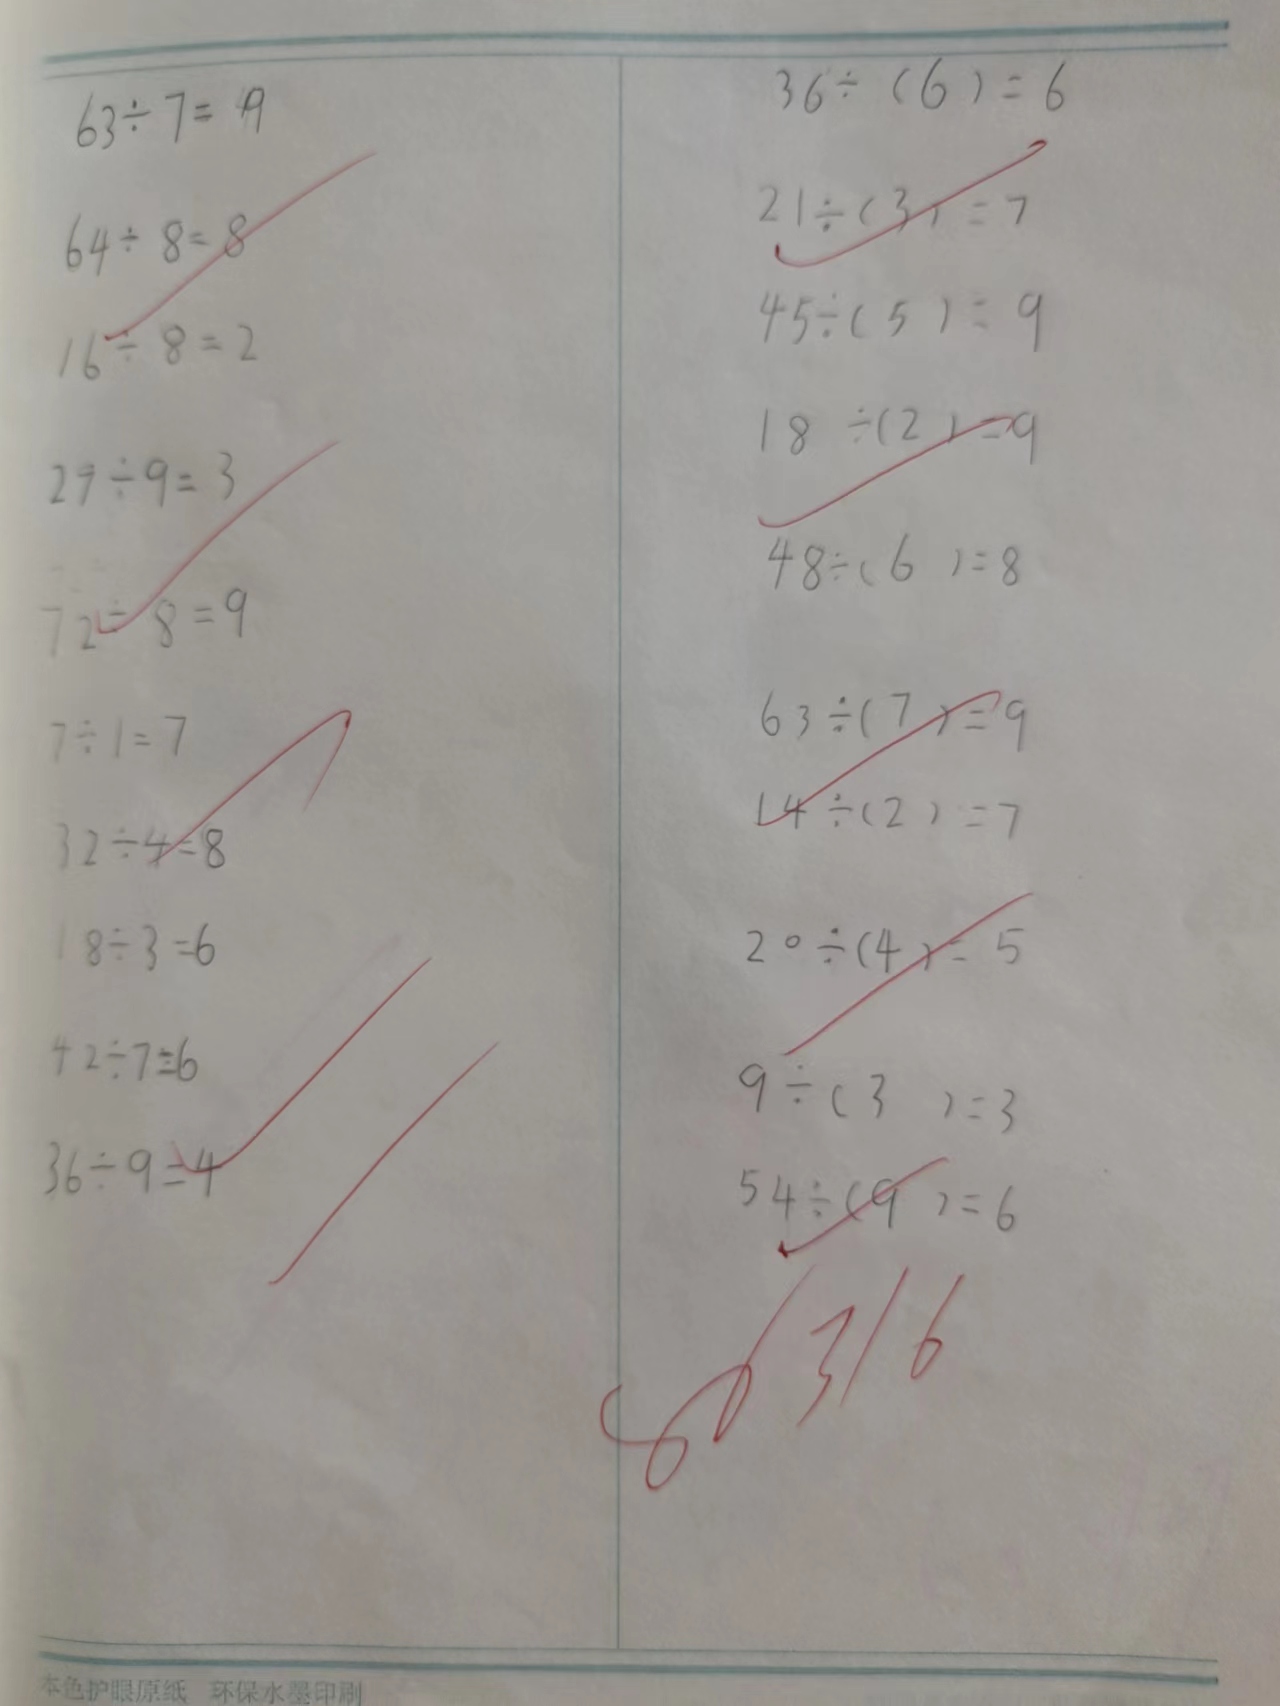 63÷7=9
64÷8=8
16÷8=2
29÷9=3
72÷8=9
7÷1=7
32÷4=8
18÷3=6
42÷7=6
36÷9=4
36÷(6)=6
21÷(3)=7
45÷(5)=9
18÷(2)=9
48÷(6)=8
63÷(7)=9
14÷(2)=7
20÷(4)=5
9÷(3)=3
54÷(9)=6
3/6
本色护眼原纸 环保水墨印刷